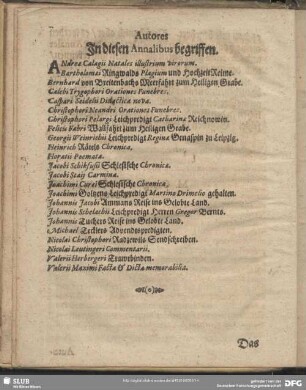 Autores
In diesen Annalibus begriffen.
Andreæ Calagii Natales illustrium virorum.
Bartholomæi Ringwalds Plagium und Hochzeit Reime.
Bernhard von Breitenbachs Meerfahrt zum Heiligen Grabe.
Calebi Trygophori Orationes Funebres.
Casparis Seidelii Didactica nova.
Christophori Neandri Orationes Funebres.
Christophori Pelargi Leichpredigt Catharinæ Reichnowin.
Felicis Fabri Wallfahrt zum Heiligen Grabe.
Georgii Weinrichii Leichpredigt Reginæ
Heinrich Rätels Chronica.
Horatii Poemata.
Jacobi Schikfusii Schlesische Chronica.
Jacobi Staii Carmina.
Joachimi Curæi Schlesische Chronica.
Joachimi Leichpredigt Martino gehalten.
Johannis Jacobi Ammans Reise ins Gelobte Land.
Johannis Leichpredigt Herren Gregor
Johannis Tuchers Reise ins Gelobte Land.
Michael Adventspredigten.
Nicolai Christophori Radzewils Sendschreiben.
Nicolai Leutingeri Commentarii.
Valerii Herbergeri Trawrbinden.
Valerii Maximi Facta & Dicta memorabilia.
Das
SLUB
Wir führen Wissen.
DFG